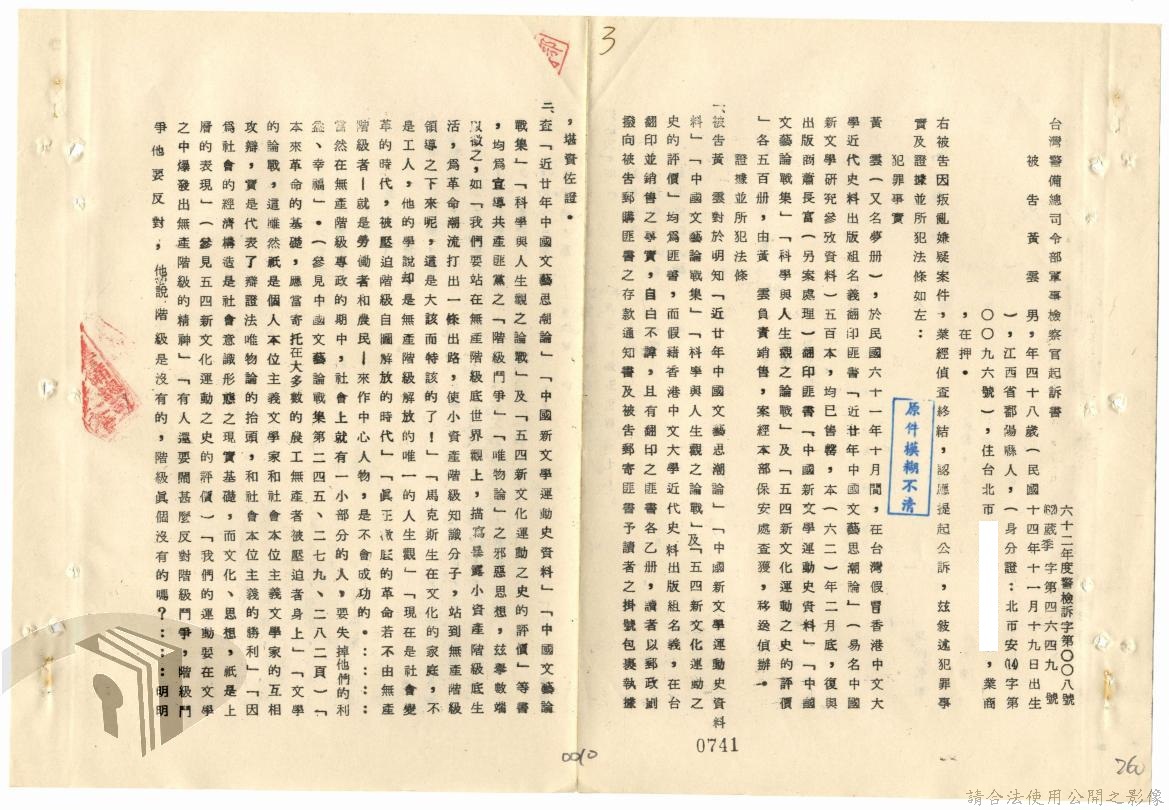 六十二年度警檢訴字第〇〇八號
蔵季字第四六四九號
台灣警備總司令部軍事檢察官起訴書
被告黃雲 男，年四十八歲（民國十四年十一月十九日出生
），江西省鄱陽縣人，（身分證：北市安(14)字第
〇〇九六號），住台北市　　　，業商
，在押。
右被告因叛亂嫌疑案件，業經偵查終結，認應提起公訴，玆敘述犯罪事
實及證據並所犯法條如左：
犯罪事實
黃　雲（又名夢册），於民國六十一年十月間，在台灣假冒香港中文大
學近代史料出版組名義翻印匪書「近廿年中國文藝思潮論」（易名中國
新文學研究參攷資料）五百本，均已售罄，本（六二）年二月底，復與
出版商蕭長富（另案處理）翻印匪書「中國新文學運動史資料」「中國
文藝論戰集」「科學與人生觀之論戰」及「五四新文化運動之史的評價
」各五百册，由黃　雲負責銷售，案經本部保安處查獲，移送偵辦。
證據並所犯法條
一、被告黃　雲對於明知「近廿年中國文藝思潮論」「中國新文學運動史資料
料」「中國文藝論戰集」「科學與人生觀之論戰」及「五四新文化運動之
史的評價」均爲匪書，而假藉香港中文大學近代史料出版組名義，在台
翻印並銷售之事實，自白不諱，且有翻印之匪書各乙册，讀者以郵政劃
撥向被告郵購匪書之存款通知書及被告郵寄匪書予讀者之掛號包裹執據
，堪資佐證。
二、查「近廿年中國文藝思潮論」「中國新文學運動史資料」「中國文藝論
戰集」「科學與人生觀之論戰」及「五四新文化運動之史的評價」等書
，均爲宣導共產匪黨之「階級鬥爭」「唯物論」之邪惡思想，玆舉數端
以徵之，如「我們要站在無產階級底世界觀上，描寫暴露小資產階級底生
活，爲革命潮流打出一條出路，使小資產階級知識分子，站到無產階級
領導之下來呢，這是大該而特該的了！」「馬克斯生在文化的家庭，不
是工人，他的學說却是無產階級解放的唯一的人生觀」「現在是社會變
革的時代，被壓迫階級自圖解放的時代」「眞正澈底的革命若不由無產
階級者—就是勞働者和農民—來作中心人物，是不會成功的。：：：：
當然在無產階級專政的期中，社會上就有一小部分的人，要失掉他們的利
益、幸福」。（參見中國文藝論戰集第二四五、二七九、二八二頁）「
本來革命的基礎，應當寄托在大多數的農工無產者被壓迫者身上」「文學
的論戰，這雖然祇是個人本位主義文學家和社會本位主義文學家的互相
攻辯，實是代表了辯證法唯物論的抬頭，和社會本位主義的勝利」「因
爲社會的經濟構造是社會意識形態之現實基礎，而文化、思想，祇是上
層的表現」（參見五四新文化運動之史的評價）「我們的運動要在文學
之中爆發出無產階級的精神」「有人還要鬧甚麼反對階級鬥爭，階級鬥
爭他要反對，他說階級是沒有的，階級眞個沒有的嗎？：：：明明
原件模糊不清
3
0741
0010
260
請合法使用公開之影像